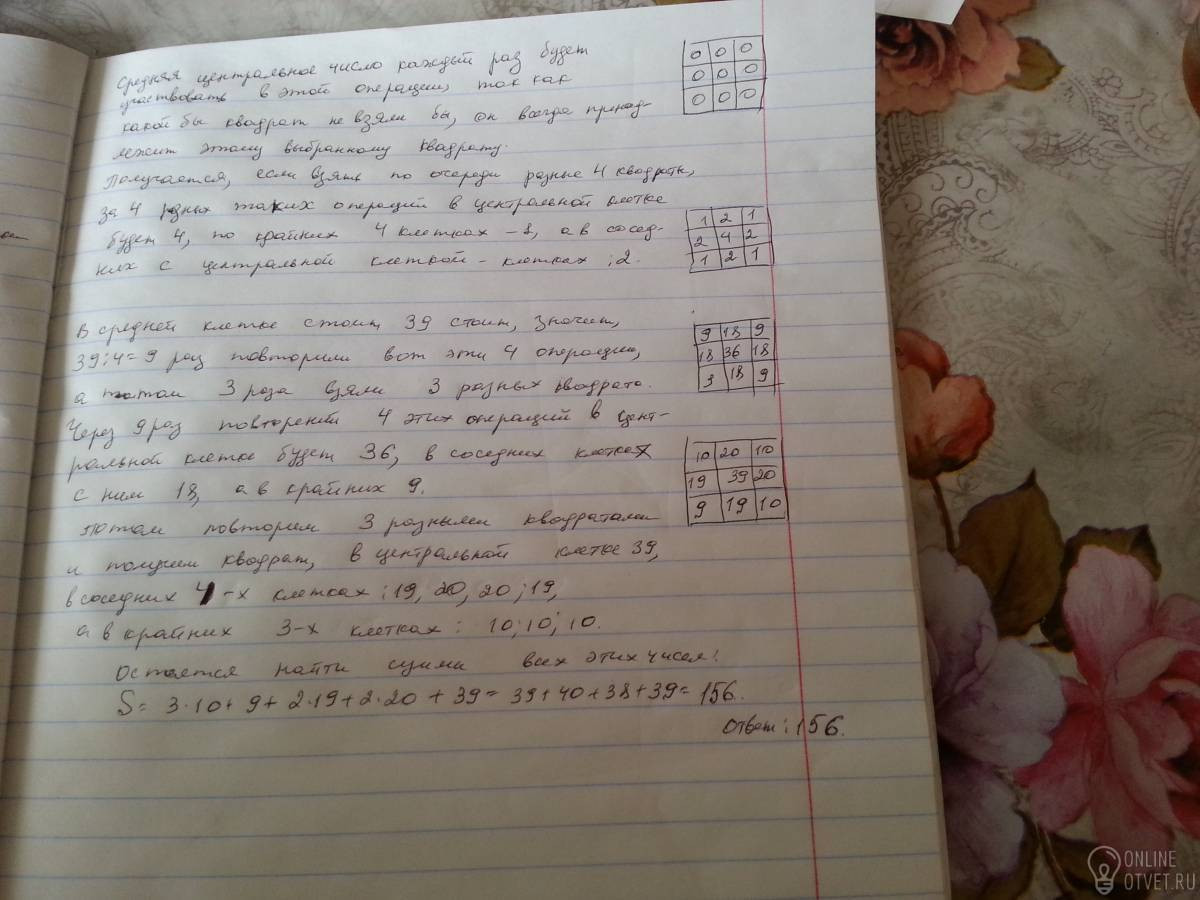 Средняя центральное число каждый раз будет
участвовать в этой операции, так как
какой бы квадрат не взяли бы, он всегда принад-
лежит этому выбранному квадрату.
Получается, если взять по очереди разные 4 квадраты,
за 4 разных таких операций в центральной клетке
будет 4, по крайних 4 клетках - 1, а в сосед-
них с центральной клеткой - клетках : 2.
0 0 0
0 0 0
0 0 0
1 2 1
2 4 2
1 2 1
В средней клетке стоит 39 стоит, значит,
39:4= 9 раз повторили вот эти 4 операции,
а потом 3 раза взяли 3 разных квадрата.
Через 9 раз повторений 4 этих операций в цент-
ральной клетке будет 36, в соседних клетках
с ним 18, а в крайних 9.
9 18 9
18 36 18
3 18 9
потом повторим 3 разными квадратами
и получим квадрат, в центральной клетке 39,
в соседних 4-х клетках : 19, 20, 20 ; 19,
а в крайних 3-х клетках : 10; 10; 10.
10 20 10
19 39 20
9 19 10
Остается найти сумму всех этих чисел:
S= 3·10+ 9+ 2·19+ 2·20 + 39= 39+40+38+39= 156.
Ответ: 156.
ONLINE
OTVET.RU